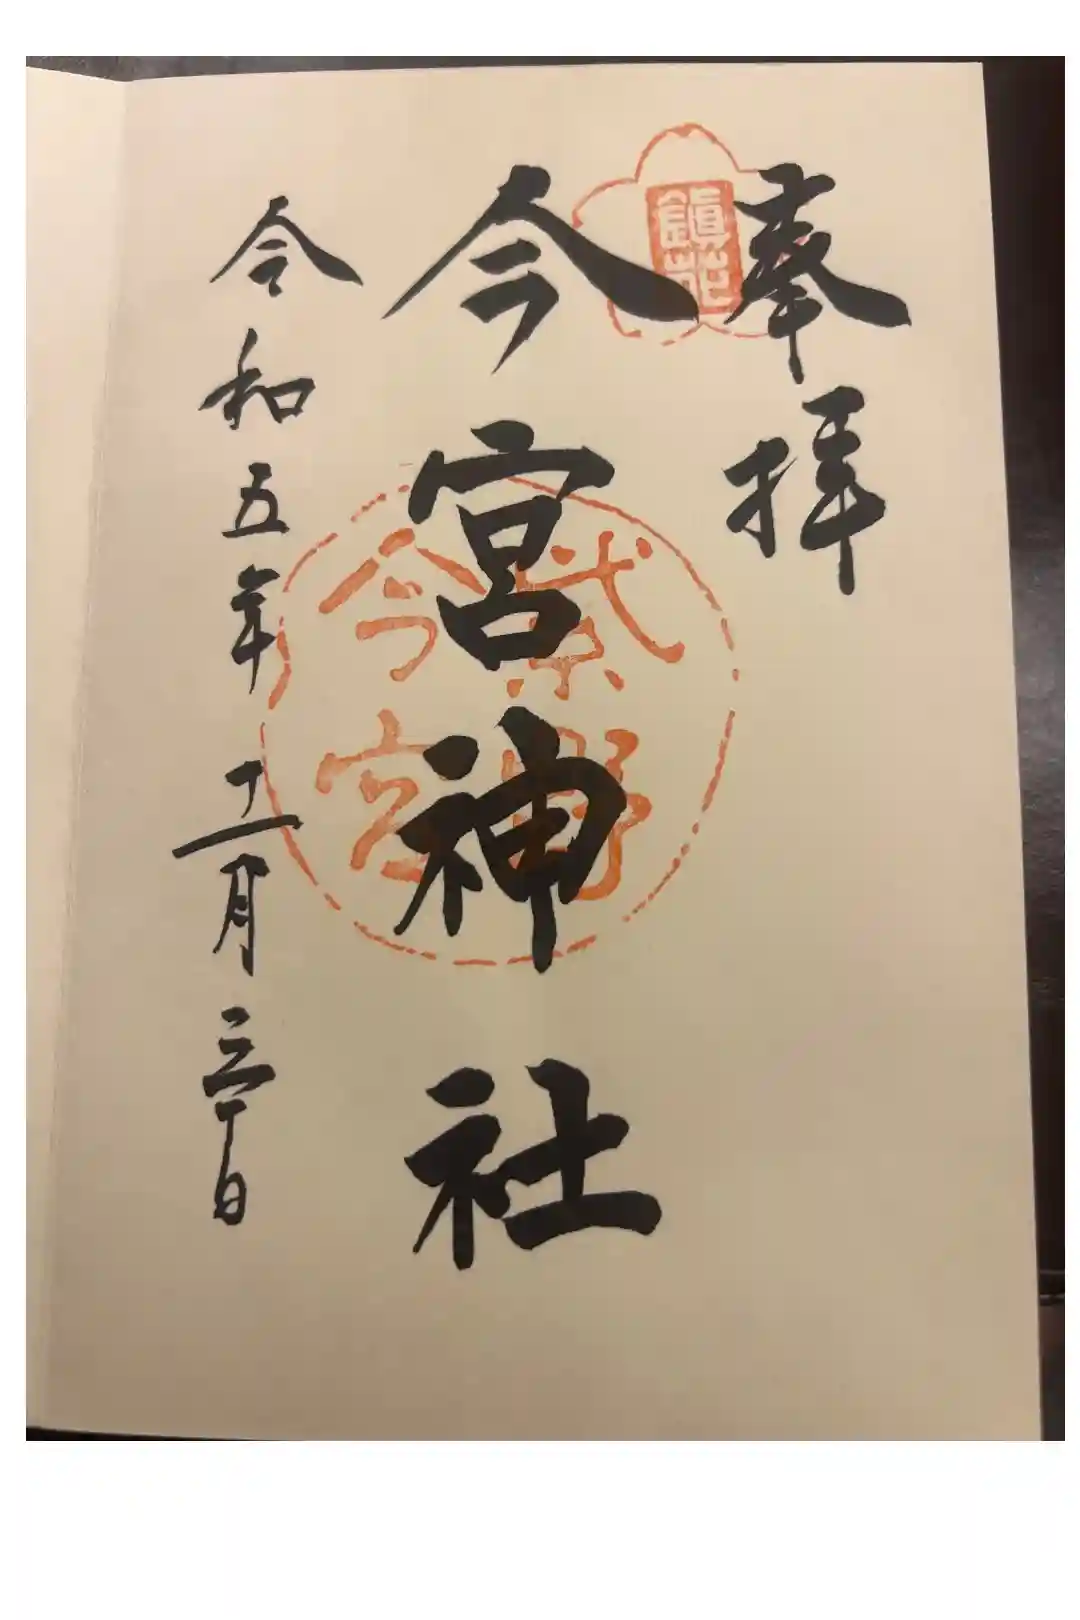 奉拝
鎮花
今宮神社
紫野
今宮
令和五年十一月三十日